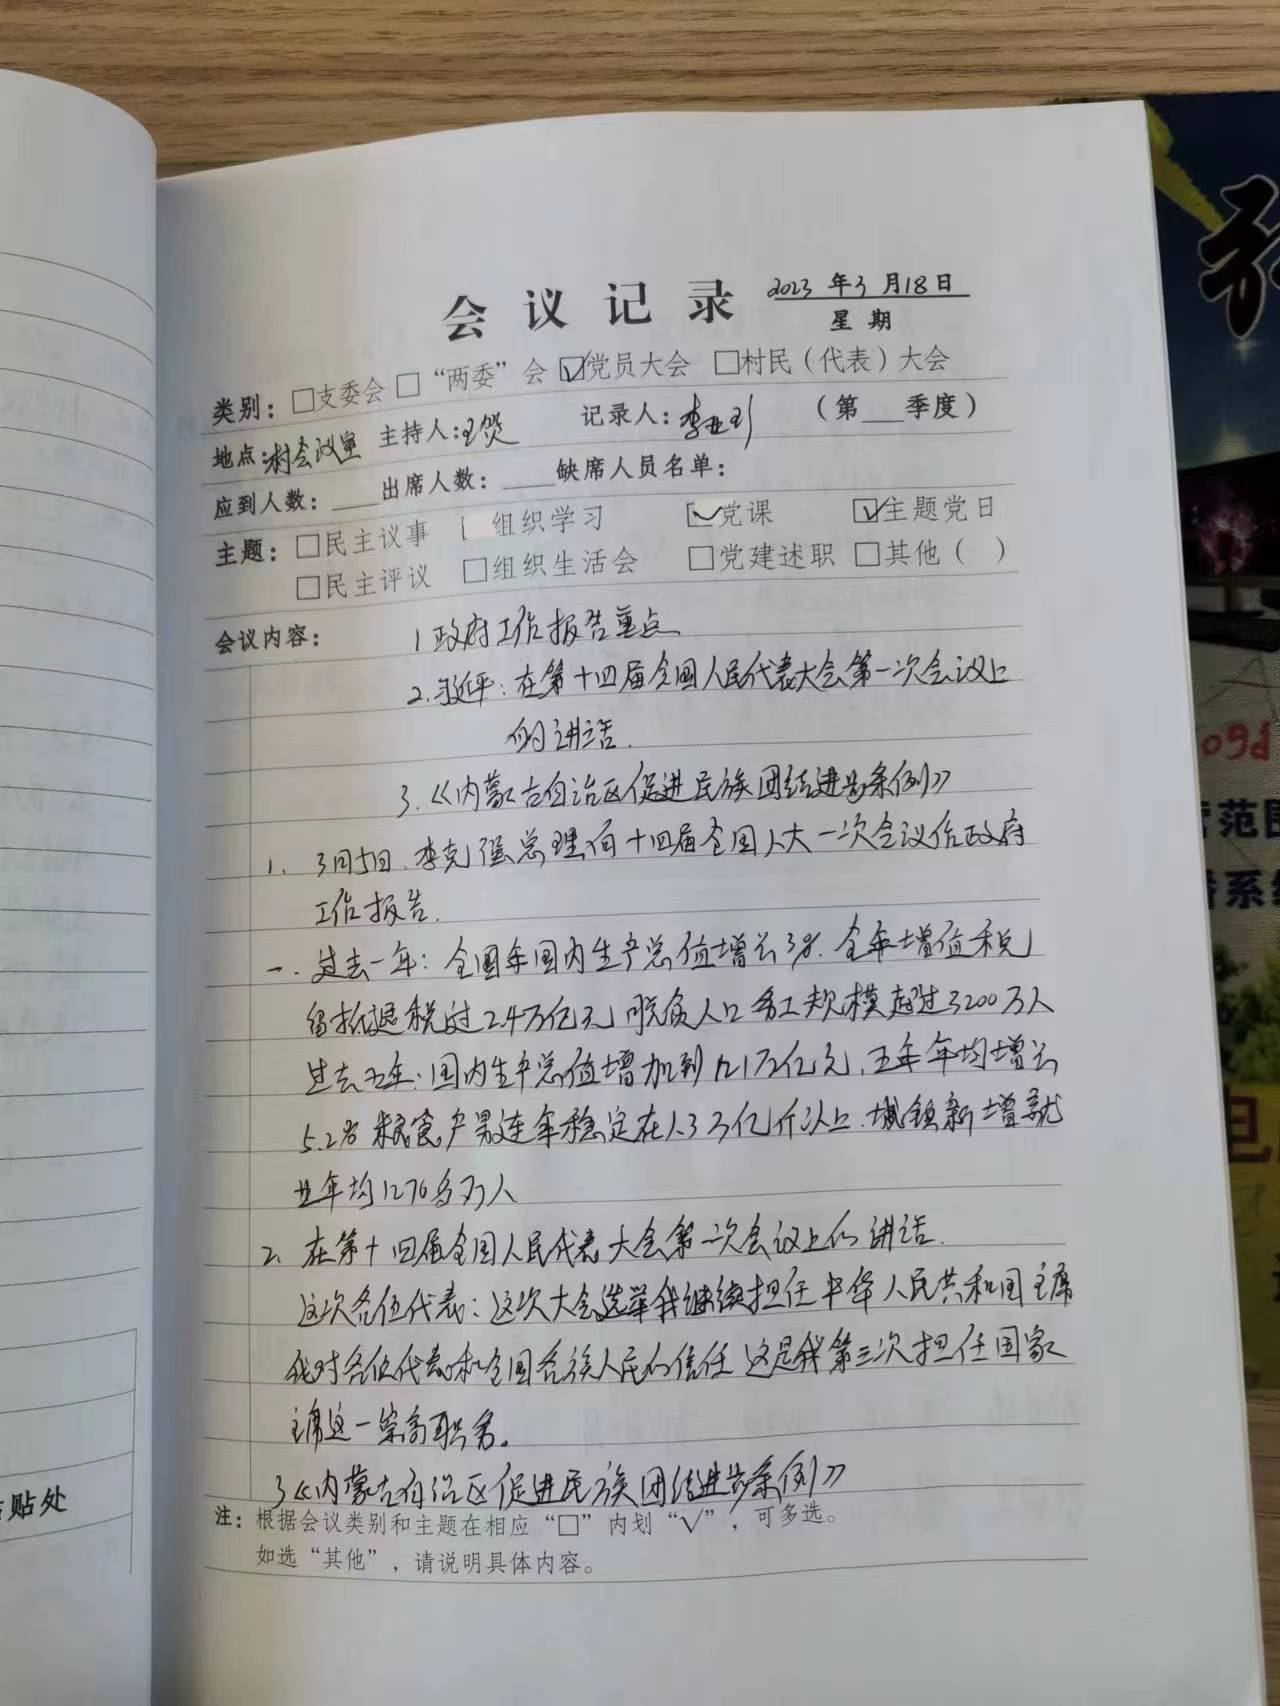 会议记录 2023年3月18日
星期
类别：□支委会 □“两委”会 ☑党员大会 □村民（代表）大会
地点：村会议室 主持人：王贺 记录人：李亚 （第___季度）
应到人数：____出席人数：____缺席人员名单：
主题：□民主议事 组织学习 ☑党课 ☑主题党日
□民主评议 □组织生活会 □党建述职 □其他（ ）
会议内容： 1政府工作报告重点
2.习近平：在第十四届全国人民代表大会第一次会议上
的讲话.
3.《内蒙古自治区促进民族团结进步条例》
1. 3月5日.李克强总理向十四届全国人大一次会议作政府
工作报告.
一.过去一年：全国年国内生产总值增长3%.全年增值税
留抵退税过2.4万亿元 脱贫人口务工规模超过3200万人
过去五年：国内生产总值增加到121万亿元,五年年均增长
5.2% 粮食产累连年稳定在1.3万亿斤以上.城镇新增就
业年均1270多万人
2. 在第十四届全国人民代表大会第一次会议上的讲话.
这次各位代表：这次大会选举我继续担任中华人民共和国主席
我对各位代表和全国各族人民的信任 这是我第三次担任国家
主席这一崇高职务。
3《内蒙古自治区促进民族团结进步条例》
注：根据会议类别和主题在相应“□”内划“√”，可多选。
如选“其他”，请说明具体内容。
贴处
范围
系